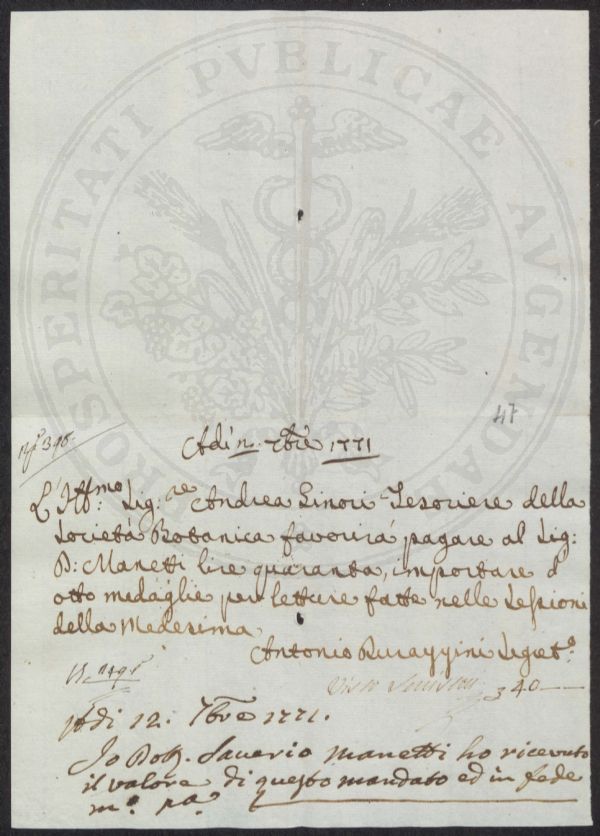 PROSPERITATI PVBLICAE AVGENDAE
47
Adi 11. 7bre 1771
L'Illmo: Sig:re Andrea Ginori Tesoriere della
Società Botanica favorirà pagare al Sig:
D: Manetti lire quaranta, importare d
otto medaglie per letture fatte nelle Sessioni
della Medesima
Antonio Segret.o
Visto
340
Adi 12. 7bre 1771.
Io Dott. Saverio Manetti ho ricevuto
il valore di questo mandato ed in fede
m.o pa.